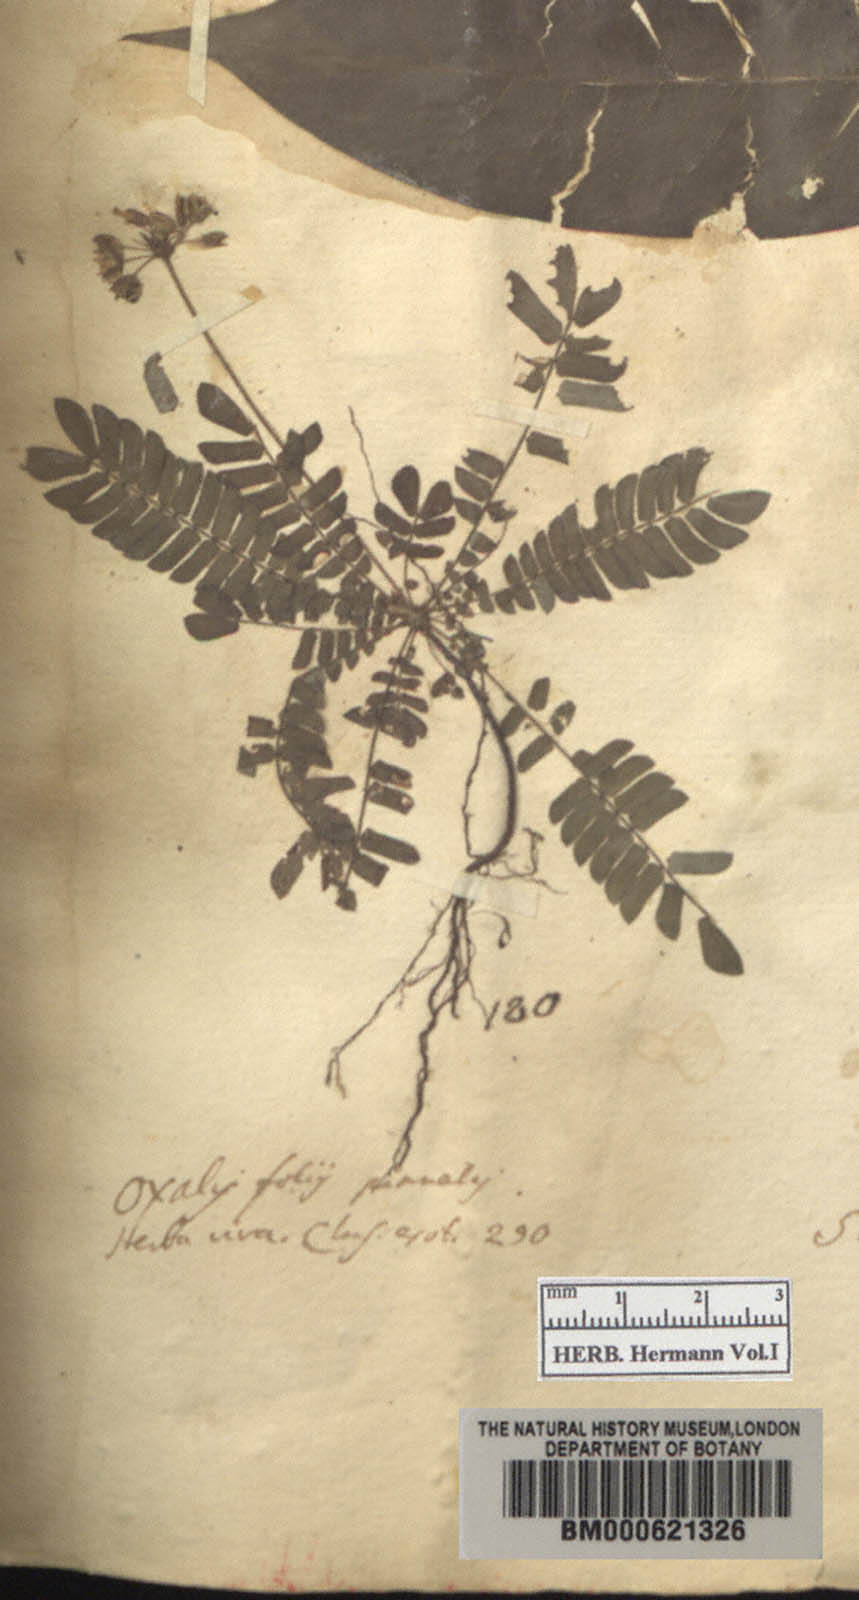 180
Oxalys folijs pinnatis.
Herba viva. Clus. exot. 290
mm 1 2 3
HERB. Hermann Vol.I
THE NATURAL HISTORY MUSEUM,LONDON
DEPARTMENT OF BOTANY
BM000621326